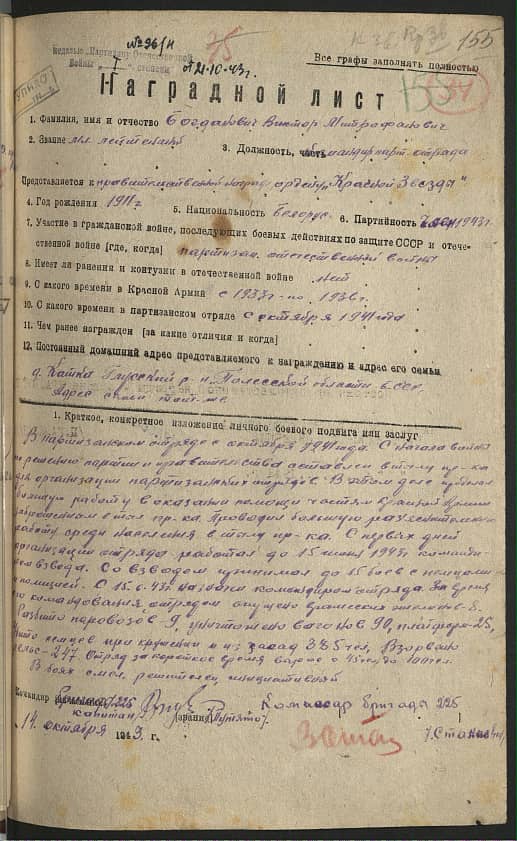 №96/н
75
155
Медалью "Партизану Отечественной
Войны" I степени
21-10-43г.
Все графы заполнять полностью
Наградной лист
1. Фамилия, имя и отчество Богданович Виктор Митрофанович
2. Звание мл. лейтенант
3. Должность, часть командир парт. отряда
Представляется к правительственной награде ордену "Красной Звезды"
4. Год рождения 1911г
5. Национальность белорус
6. Партийность 1943г.
7. Участие в гражданской войне, последующих боевых действиях по защите СССР и отече-
ственной войне [где, когда] партизан отечественной войны
8. Имеет ли ранения и контузии в отечественной войне нет
9. С какого времени в Красной Армии с 1933г. по 1936г.
10. С какого времени в партизанском отряде с октября 1941 года
11. Чем ранее награжден [за какие отличия и когда]
12. Постоянный домашний адрес представляемого к награждению и адрес его семьи
д. Катка Глусский р-н Полесской области БССР
Адрес семьи тот же
1. Краткое, конкретное изложение личного боевого подвига или заслуг
В партизанском отряде с октября 1941 года. С начала войны
по решению партии и правительства оставлен в тылу пр-ка
для организации партизанских отрядов. В этом деле проделал
большую работу в оказании помощи частям Красной Армии
в тыл пр-ка. Проводил большую разъяснительную
работу среди населения в тылу пр-ка. С первых дней
организации отряда работал до 15 июня 1943г. команди-
ром взвода. Со взводом принимал до 15 боев с немцами
и полицией. С 15.6.43г. назначен командиром отряда. За время
его командования отрядом спущено вражеских эшелонов-8.
Разбито паровозов-9, уничтожено вагонов 90, платформ-25,
убито немцев при крушении и из засад 385 чел, Взорвано
рельс-247. Отряд за короткое время вырос с 45 чел до 100 чел.
В боях смел, решителен, инициативный
Командир бригады 225
капитан
(звание) /Путято/.
Комиссар бригады 225
14 октября 1943 г.